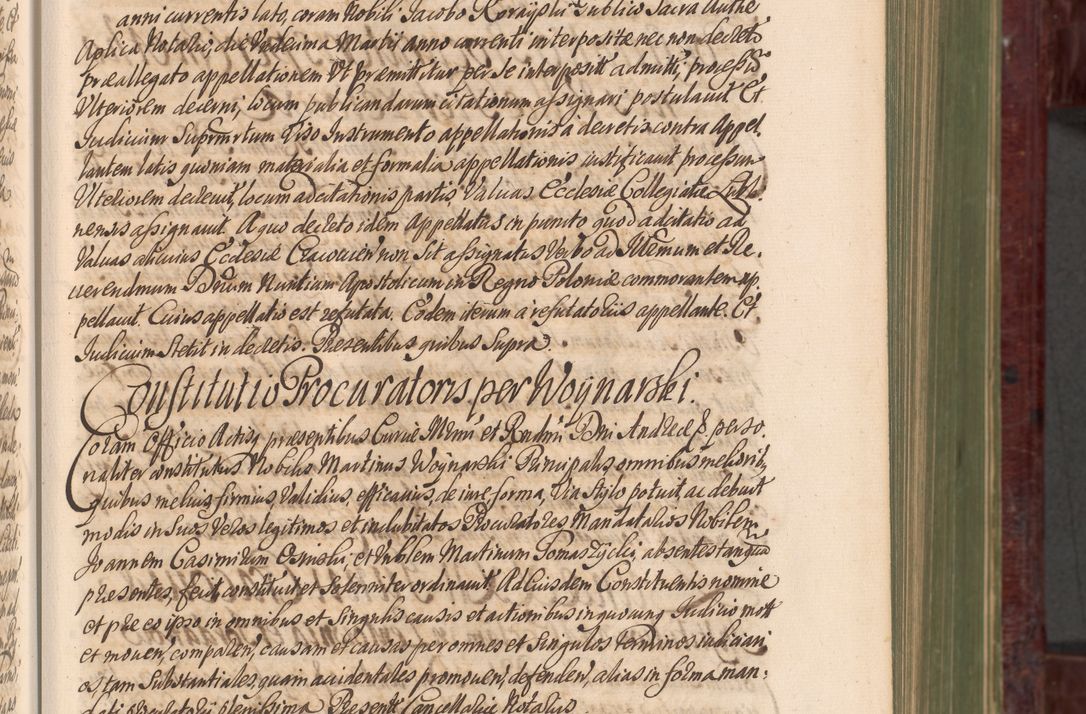 anni currentis lato, coram Nobili Jacobo Publico Sacra Authte
Aplica Notario, die Undecima Martii anno currenti interpositæ nec non decreto
præallegato appellationem Ut præmittitur per se interpositã admitti, processũ
Ulteriorem decerni, locum publicandarum citationum assignari postulavit. Et
Judicium Supremum Viso Instrumento appellationis â decretis contra Appel,
lantem latis quoniam materialia et formalia appellationis iustificavit processum
Ulteriorem decrevit, locum adcitationis partis Valvas Ecclesiæ Collegiatæ Lubl,
nensis assignavit. A quo decreto idem Appellatus in puncto quod adcitatio ad
Valvas alicuius Ecclesiæ Cracovien non Sit assignatus Verbo ad Illemum et Re,
verendmum Dnum Nuntium Apostolicum in Regno Poloniæ commorantem ap,
pellavit. Cuius appellatio est refutata. Eodem iterum a refutatoriis appellante. Et
Judicium Stetit in decretis. Præsentibus quibus Supra.
Constitutio Procuratoris per Woynarski.
Coram Officio Actisq præsentibus Curiæ Illmi et Rndmi Dni Andreæ perso,
naliter constitutus Nobilis Martinus Woynarski Principalis omnibus melioribq
quibus melius, firmius, Validius, efficacius, de iure, forma, Via Stylo potuit, ac debuit
modis in Suos Veros legitimos et indubitatos Procuratores Mandatarios Nobilem
Joannem Casimirum Osinski, et Nblem Martinum Tomaszycki, absentes tanquã
præsentes, fecit, constituit et Solemniter ordinavit. Ad Eiusdem Constituentis nomine
et pro eo ipso in omnibus et Singulis causis et actionibus in quocunq Judicio mott
et moven, comparen, causam et causas per omnes et Singulos terminos iudiciari
os, tam Substantiales, quam accidentales promoven, defenden, alias in forma man,
dati procuratorii plenissima. Præsente Cancellariæ Notarius.